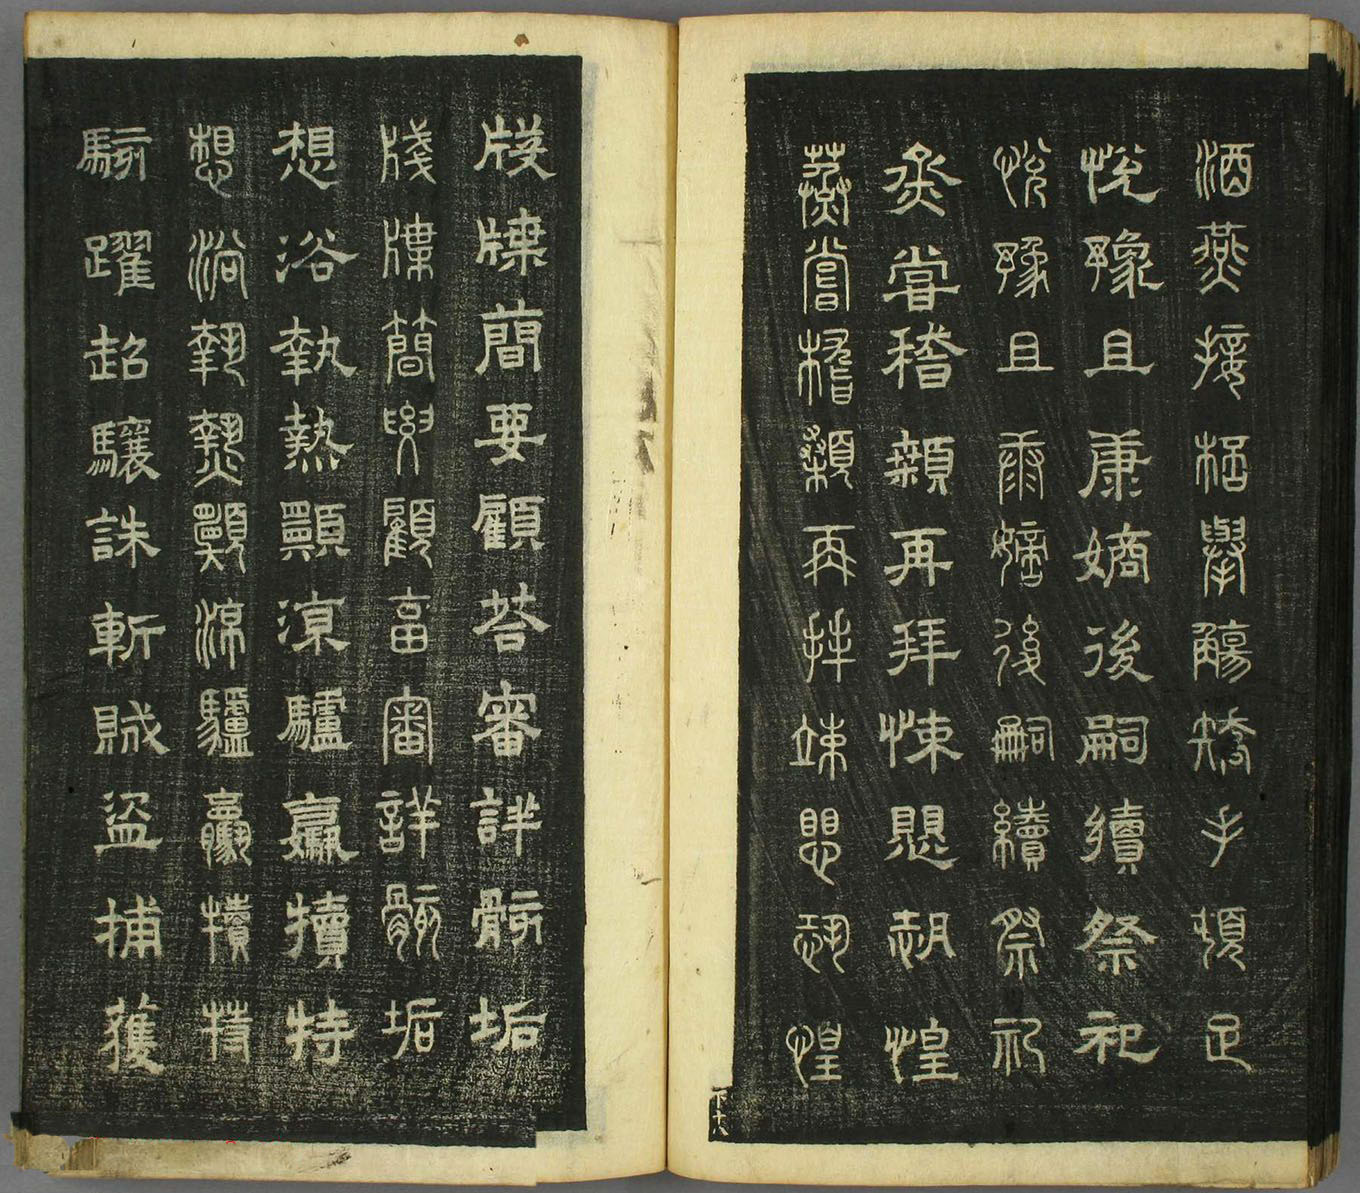 酒燕接桮舉觴矯手頓足
悅豫且康嫡後嗣續祭祀
悅豫且康嫡後嗣續祭祀
烝嘗稽顙再拜悚懼恐惶
蒸嘗稽顙再拜竦懼恐惶
下十八
牋牒簡要顧荅審詳骸垢
牋牒簡要顧畣審詳骸垢
想浴執熱願涼驢驘犢特
想浴執熱願涼驢驘犢特
駭躍超驤誅斬賊盜捕獲